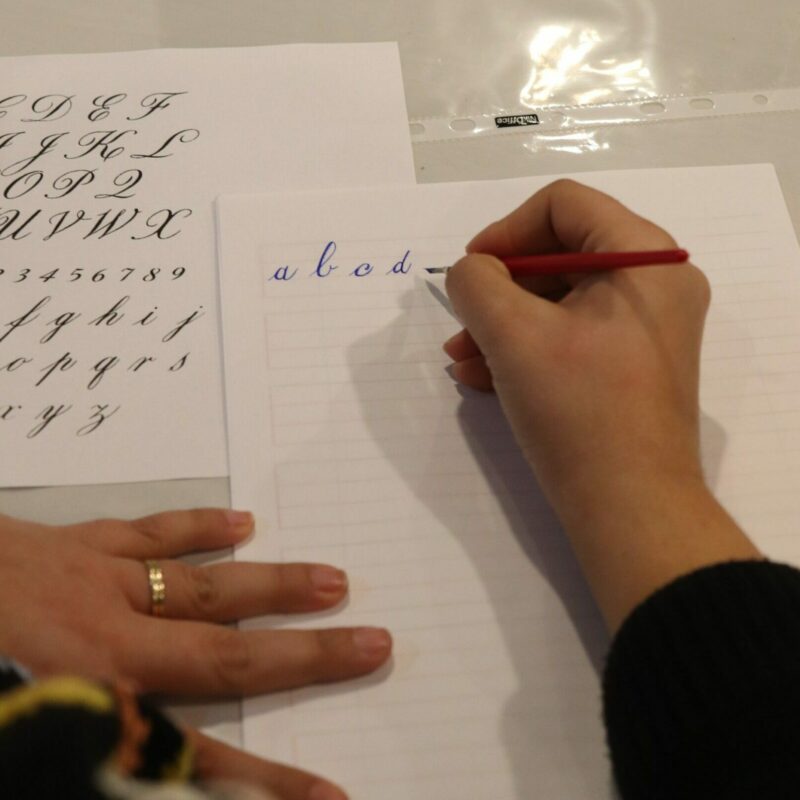 C D E F
J K L
O P Q
U V W X
3 4 5 6 7 8 9
f g h i j
o p q r s
x y z
a b c d